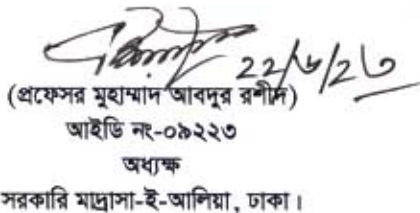 ২২/৬/২৩
(প্রফেসর মুহাম্মাদ আবদুর রশীদ)
আইডি নং-০৯২২৩
অধ্যক্ষ
সরকারি মাদ্রাসা-ই-আলিয়া, ঢাকা।